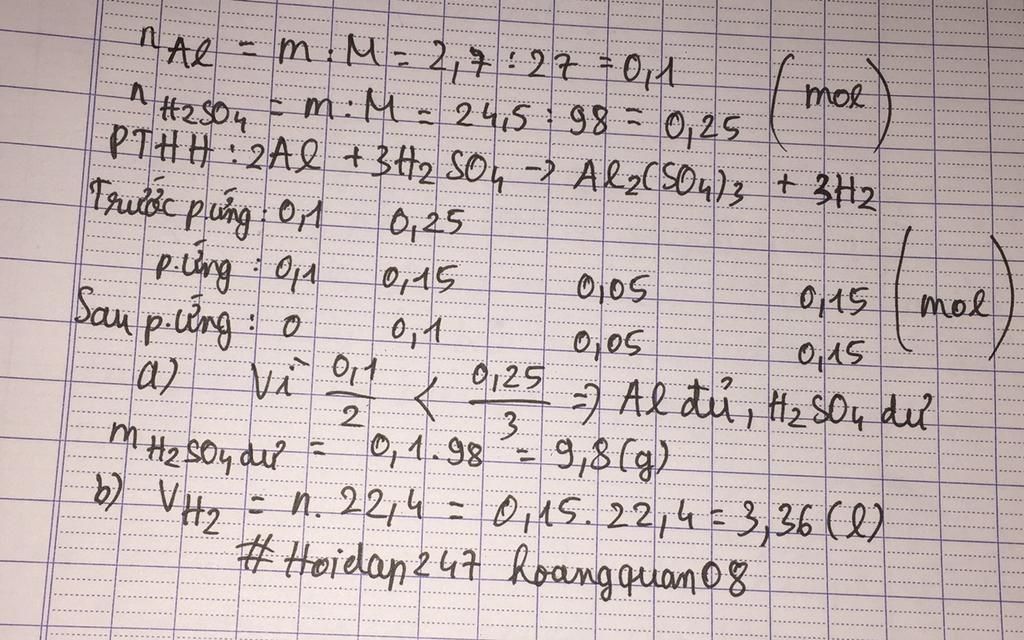 nAl = m : M = 2,7 : 27 = 0,1
nH2SO4 = m : M = 24,5 : 98 = 0,25 (mol)
PTHH : 2Al + 3H2SO4 → Al2(SO4)3 + 3H2
Trước p ứng : 0,1 0,25
p.ứng : 0,1 0,15 0,05 0,15 (mol)
Sau p.ứng : 0 0,1 0,05 0,15
a) Vì 0,1/2 < 0,25/3 => Al đủ, H2SO4 dư
mH2SO4 dư = 0,1 . 98 = 9,8 (g)
b) VH2 = n . 22,4 = 0,15 . 22,4 = 3,36 (l)
# Hoidap247 hoangquan08